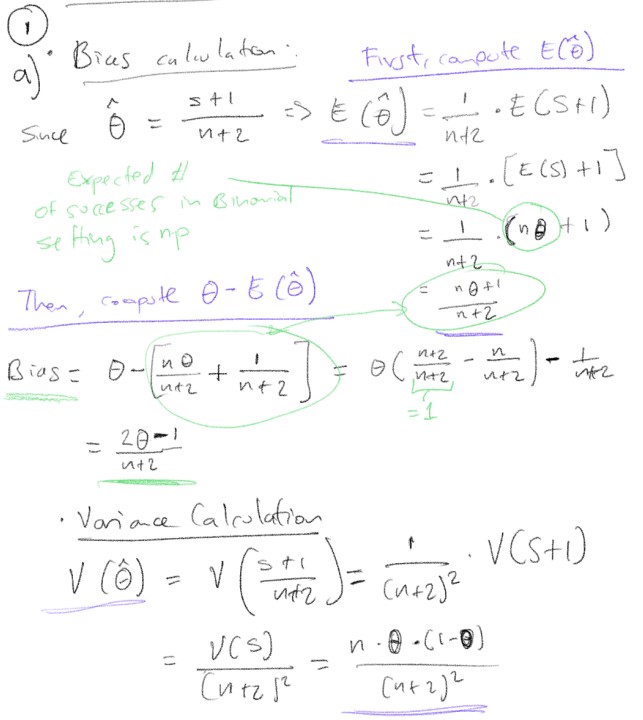 ①
a) · Bias calculation:
First, compute E(θ̂)
Since θ̂ = (s+1)/(n+2) => E(θ̂) = 1/(n+2) · E(S+1)
= 1/(n+2) · [E(S)+1]
Expected # of successes in Binomial setting is np
= 1/(n+2) · (nθ+1)
= (nθ+1)/(n+2)
Then, compute θ - E(θ̂)
Bias = θ - [nθ/(n+2) + 1/(n+2)] = θ((n+2)/(n+2) - n/(n+2)) - 1/(n+2)
=1
= (2θ-1)/(n+2)
· Variance Calculation
V(θ̂) = V((s+1)/(n+2)) = 1/(n+2)² · V(S+1)
= V(S)/(n+2)² = n·θ·(1-θ)/(n+2)²